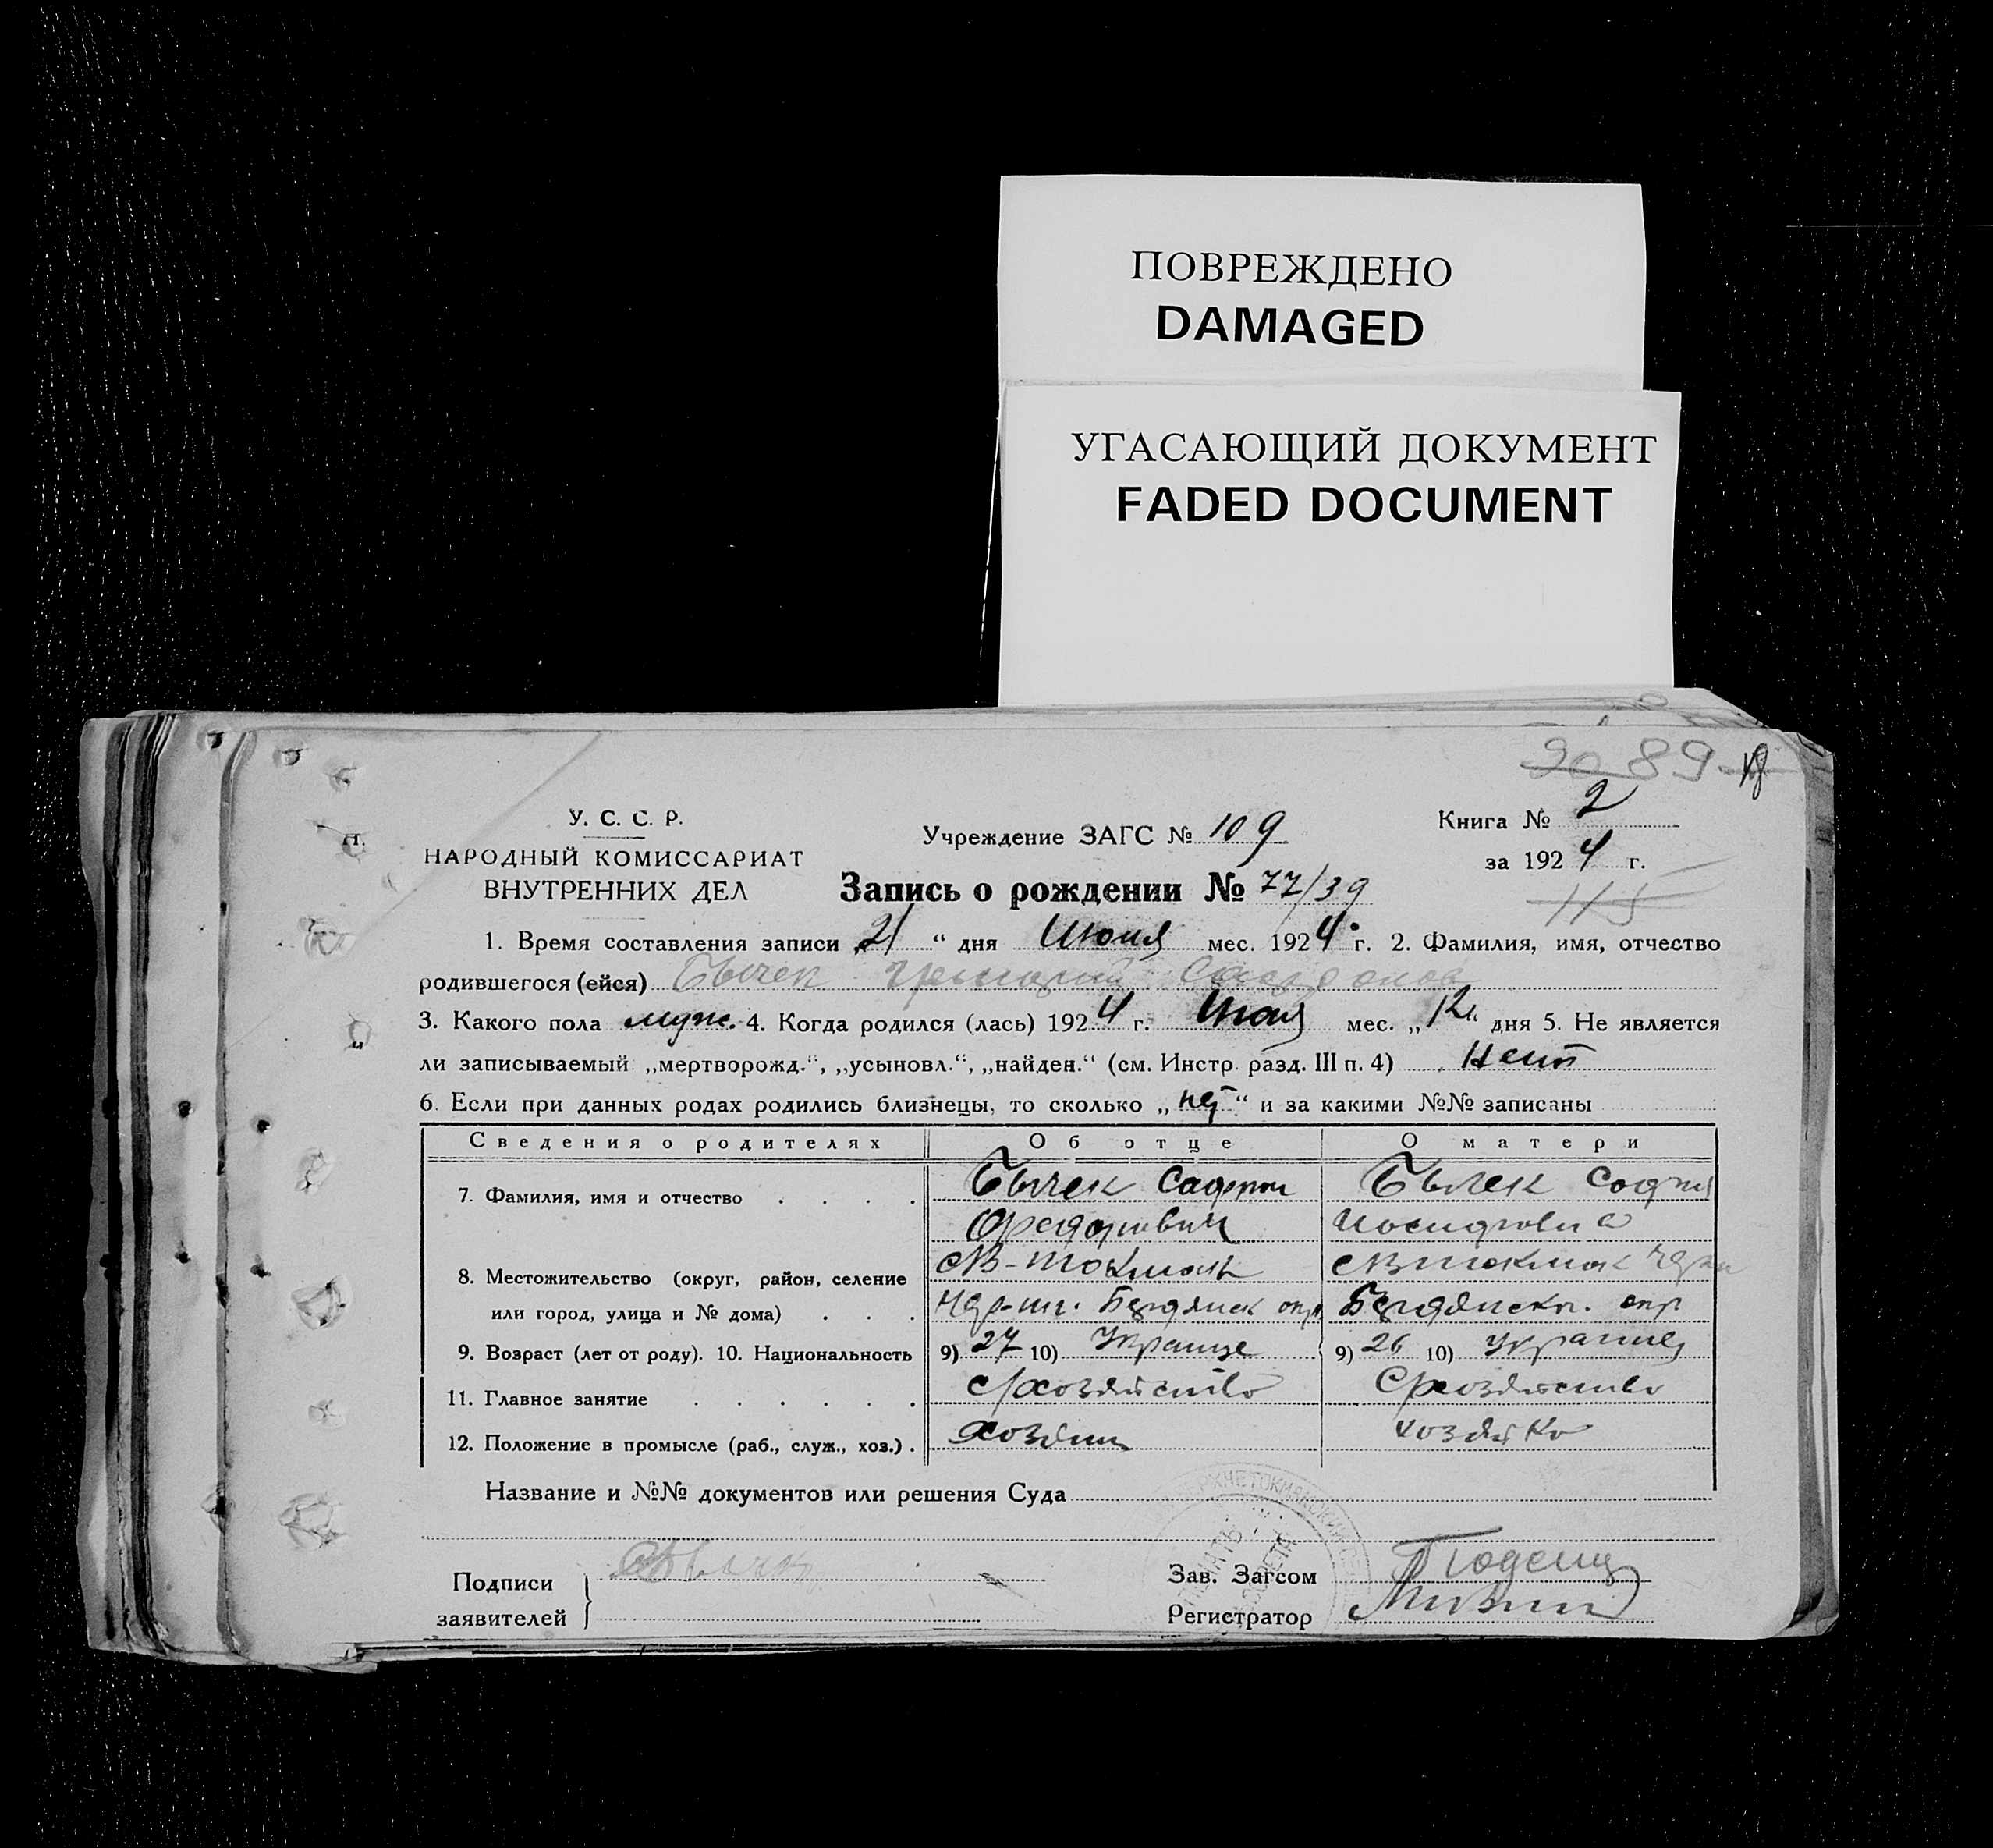 ПОВРЕЖДЕНО
DAMAGED
УГАСАЮЩИЙ ДОКУМЕНТ
FADED DOCUMENT
90 89
У. С. С. Р.
НАРОДНЫЙ КОМИССАРИАТ
ВНУТРЕННИХ ДЕЛ
Учреждение ЗАГС № 109
Книга № 2
за 1924 г.
115
Запись о рождении № 77/39
1. Время составления записи 21 " дня Июня мес. 1924 г. 2. Фамилия, имя, отчество
родившегося (ейся) Бычек
3. Какого пола муж. 4. Когда родился (лась) 1924 г. Июня мес. „12" дня 5. Не является
ли записываемый „мертворожд.", „усыновл.", „найден." (см. Инстр. разд. III п. 4) нет
6. Если при данных родах родились близнецы, то сколько „нет" и за какими №№ записаны
Сведения о родителях Об отце О матери
7. Фамилия, имя и отчество . . . . Бычек Бычек София
8. Местожительство (округ, район, селение В-Токмак В Токмак
или город, улица и № дома) . . . Бердянск окр Бердянск. окр
9. Возраст (лет от роду). 10. Национальность 9) 27 10) Украинце 9) 26 10) Украинец
11. Главное занятие . . . . . . С/хозяйство С/хозяйство
12. Положение в промысле (раб., служ., хоз.) . хозяин хозяйка
Название и №№ документов или решения Суда
Подписи
заявителей
Зав. Загсом
Регистратор